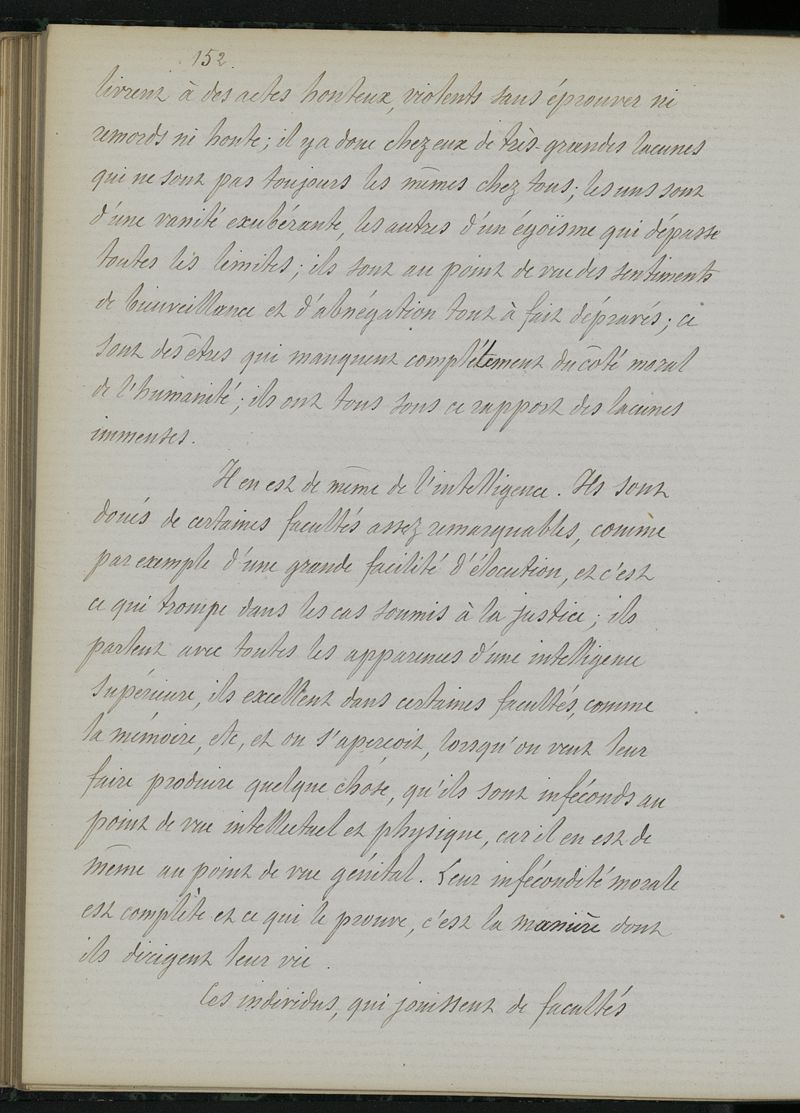 152.
livrent à des actes honteux, violents sans éprouver ni
remords ni honte; il y a donc chez eux de très-grandes lacunes
qui ne sont pas toujours les mêmes chez tous; les uns sont
d'une vanité exubérante, les autres d'un égoïsme qui dépasse
toutes les limites; ils sont au point de vue des sentiments
de bienveillance et d'abnégation tout à fait dépravés; ce
sont des êtres qui manquent complétement du côté moral
de l'humanité; ils ont tous sous ce rapport des lacunes
immenses.
Il en est de même de l'intelligence. Ils sont
doués de certaines facultés assez remarquables, comme
par exemple d'une grande facilité d'élocution, et c'est
ce qui trompe dans les cas soumis à la justice; ils
parlent avec toutes les apparences d'une intelligence
supérieure, ils excellent dans certaines facultés, comme
la mémoire, etc, et on s'aperçoit, lorsqu'on veut leur
faire produire quelque chose, qu'ils sont inféconds au
point de vue intellectuel et physique, car il en est de
même au point de vue génital. Leur infécondité morale
est complète et ce qui le prouve, c'est la manière dont
ils dirigent leur vie.
Ces individus, qui jouissent de facultés